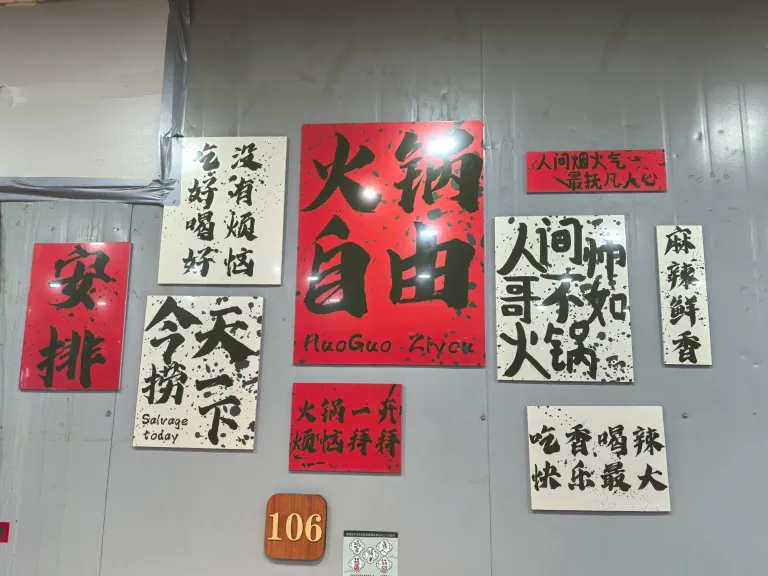 安
排
吃好喝好
没有烦恼
今天
捞一下
Salvage
today
火锅
自由
HuoGuo Ziyou
火锅一开
烦恼拜拜
人间烟火气
最抚凡人心
人间帅
哥不如
火锅
麻辣鲜香
吃香喝辣
快乐最大
106